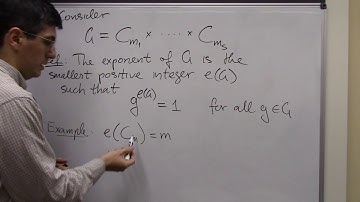 Consider
G = C_{m_1} × · · · · × C_{m_s}
Def: The exponent of G is the
smallest positive integer e(G)
such that
g^{e(G)} = 1 for all g ∈ G
Example: e(C_m) = m